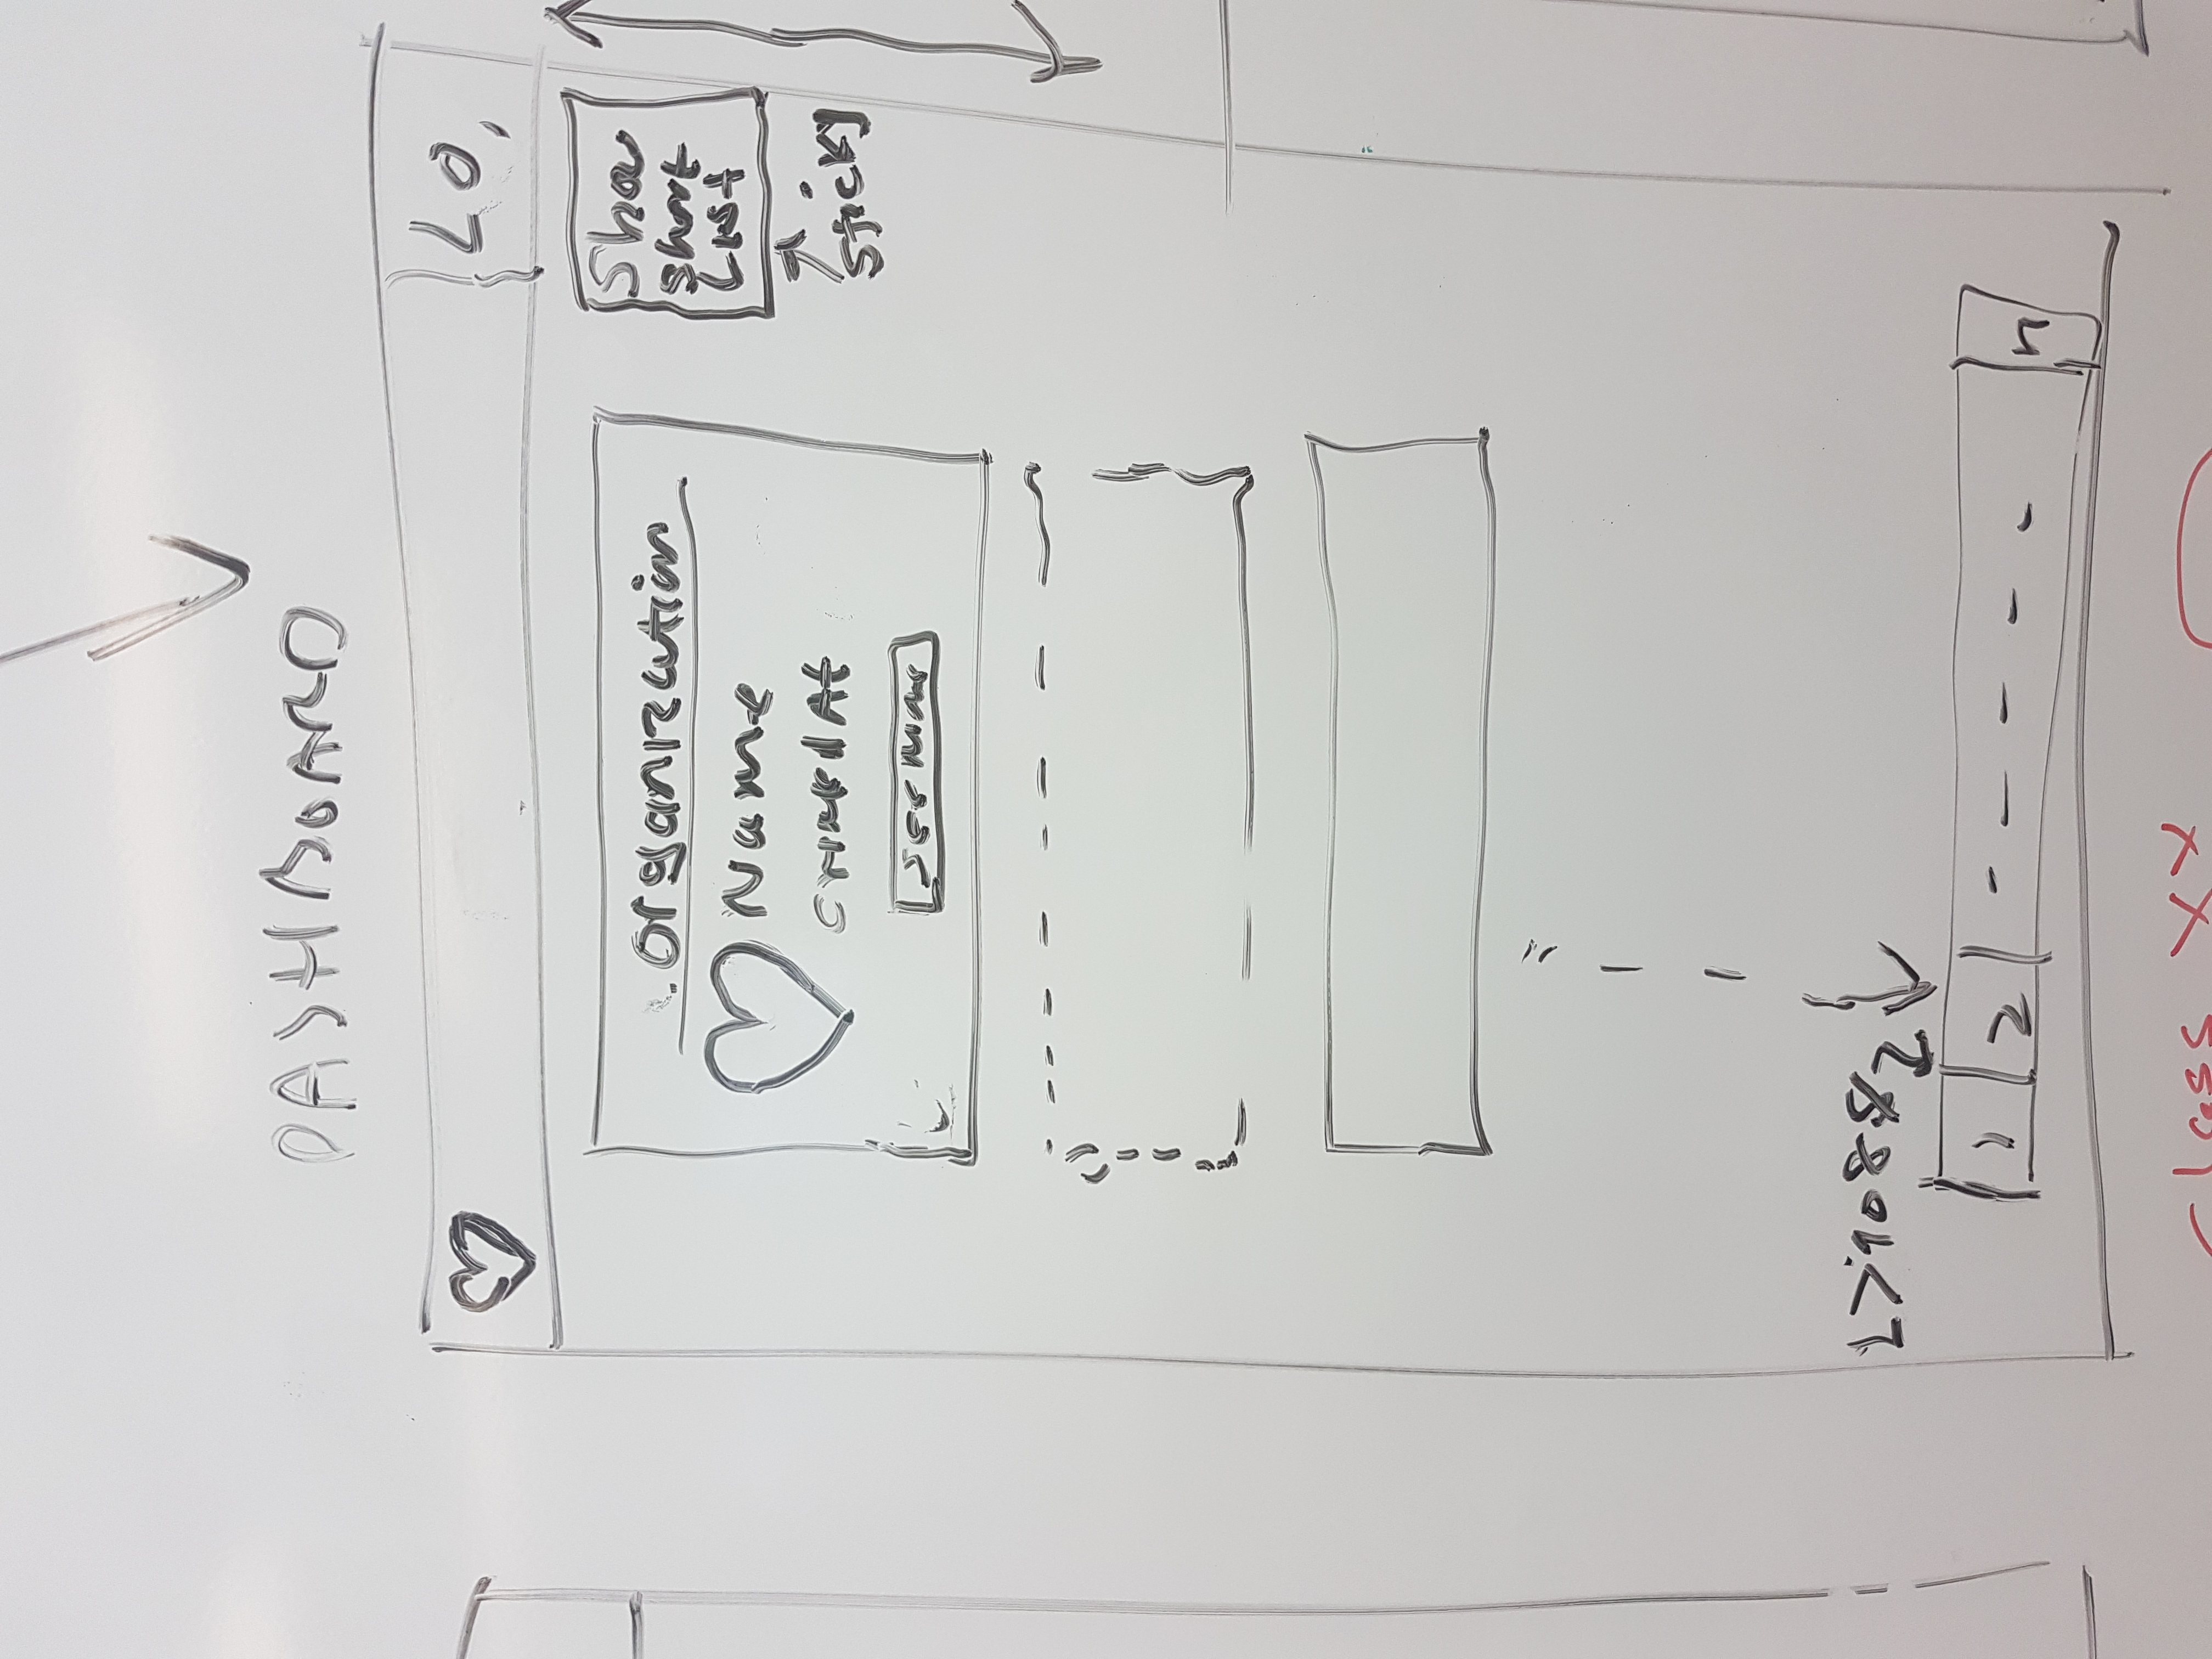 DASHBOARD
LO,
Organization
Name
Created At
See More
Show
Short
List
Sticky
1 2 - - - - - n
Class XX